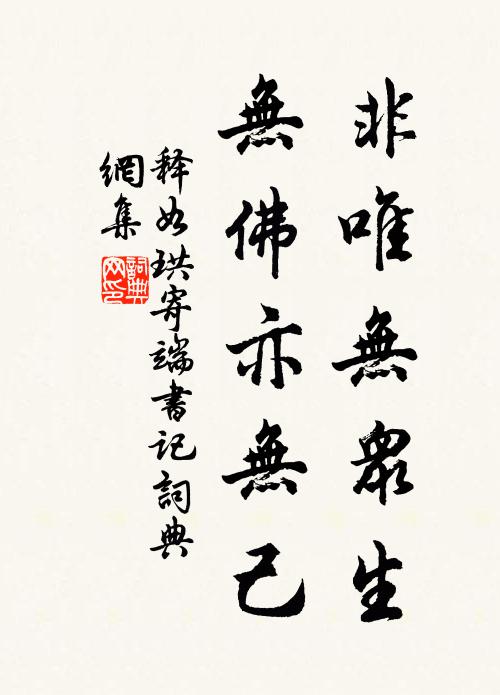 非唯無眾生
無佛亦無己
释如珙寄端書记詞典
網集
詞典
网印